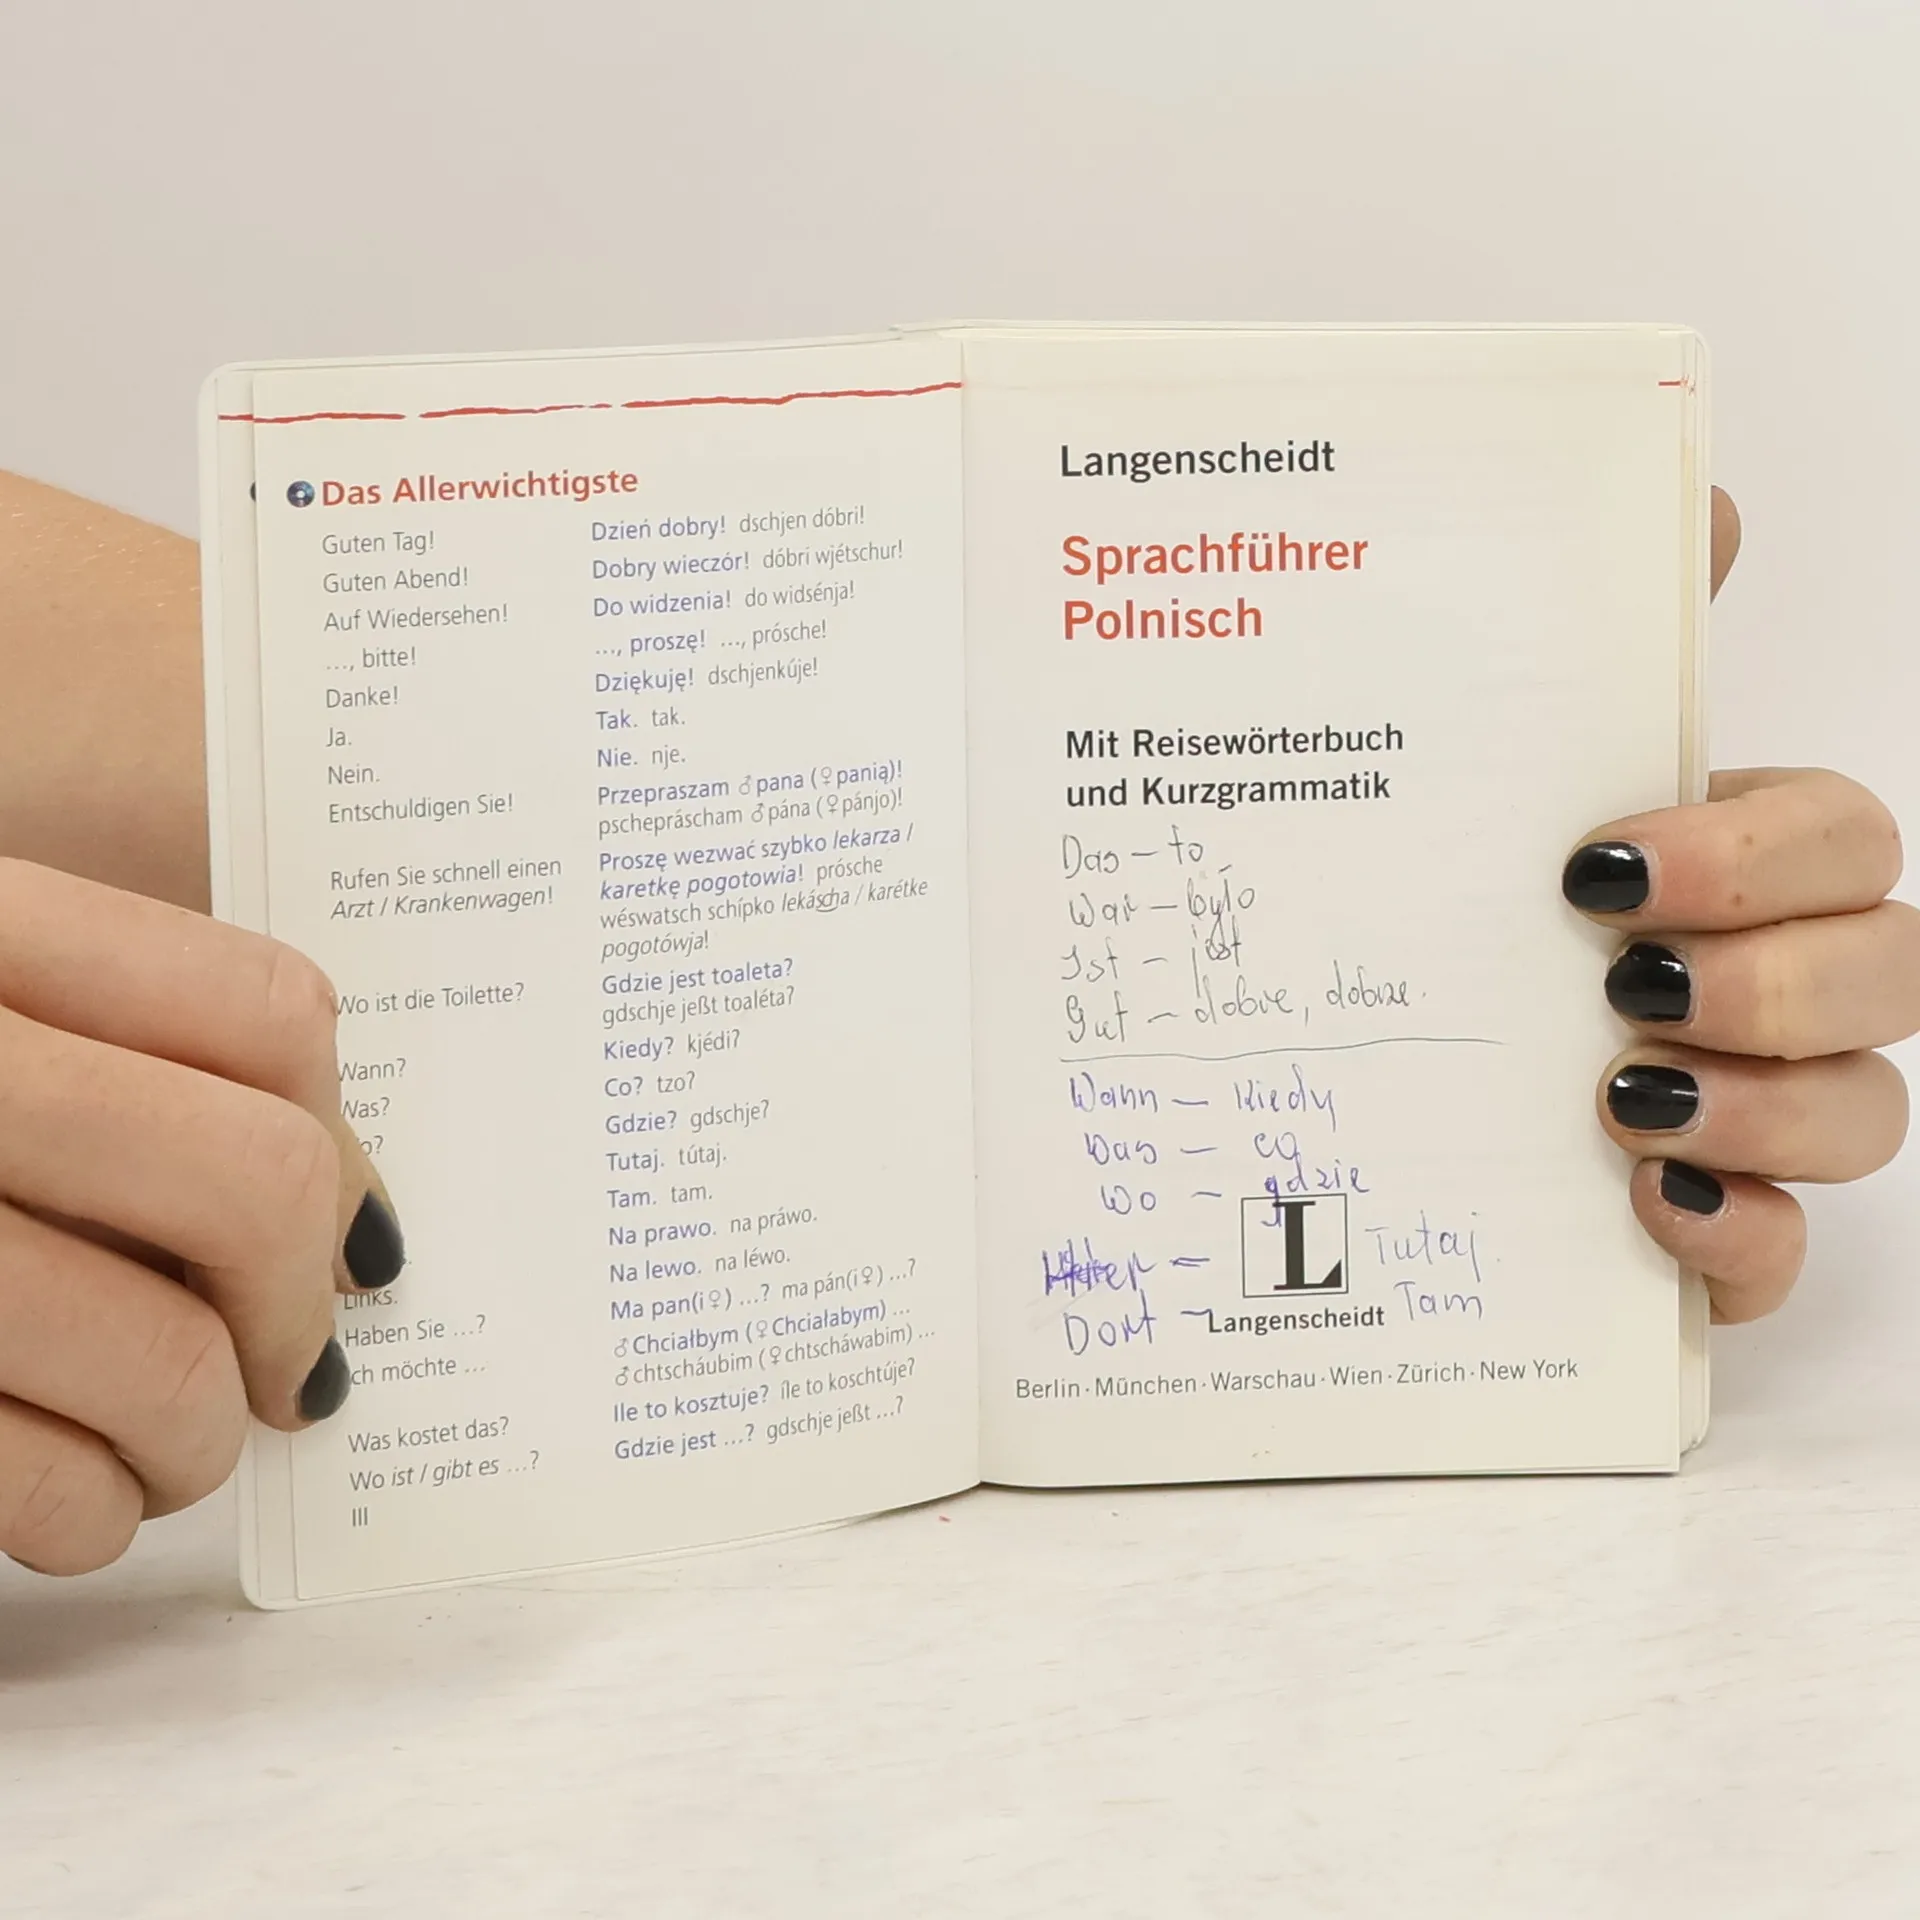 Das Allerwichtigste
Guten Tag! Dzień dobry! dschjen dóbri!
Guten Abend! Dobry wieczór! dóbri wjétschur!
Auf Wiedersehen! Do widzenia! do widsénja!
..., bitte! ..., proszę! ..., prósche!
Danke! Dziękuję! dschjenkúje!
Ja. Tak. tak.
Nein. Nie. nje.
Entschuldigen Sie! Przepraszam ♂ pana (♀ panią)!
pschepráscham ♂ pána (♀ pánjo)!
Rufen Sie schnell einen Proszę wezwać szybko lekarza /
Arzt / Krankenwagen! karetkę pogotowia! prósche
wéswatsch schípko lekáscha / karétke
pogotówja!
Wo ist die Toilette? Gdzie jest toaleta?
gdschje jeßt toaléta?
Wann? Kiedy? kjédi?
Was? Co? tzo?
Gdzie? gdschje?
Tutaj. tútaj.
Tam. tam.
Na prawo. na práwo.
Links. Na lewo. na léwo.
Haben Sie ...? Ma pan(i ♀) ...? ma pán(i ♀) ...?
ch möchte ... ♂ Chciałbym (♀ Chciałabym) ...
♂ chtscháubim (♀ chtscháwabim) ...
Was kostet das? Ile to kosztuje? íle to koschtúje?
Wo ist / gibt es ...? Gdzie jest ...? gdschje jeßt ...?
III
Langenscheidt
Sprachführer
Polnisch
Mit Reisewörterbuch
und Kurzgrammatik
Das – to
War – było
Ist – jest
Gut – dobre, dobrze.
Wann – Kiedy
Was – co
Wo – gdzie
L
Tutaj.
Dort – Tam
Langenscheidt
Berlin · München · Warschau · Wien · Zürich · New York